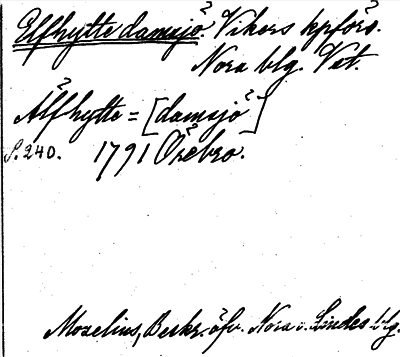 Elfhytte damsjö. Vikers kpförs.
Nora blg. Vet.
Älfhytte = [damsjö]
S. 240. 1791 Örebro.
Mozelius, Beskr. öfv. Nora o. Lindes blg.